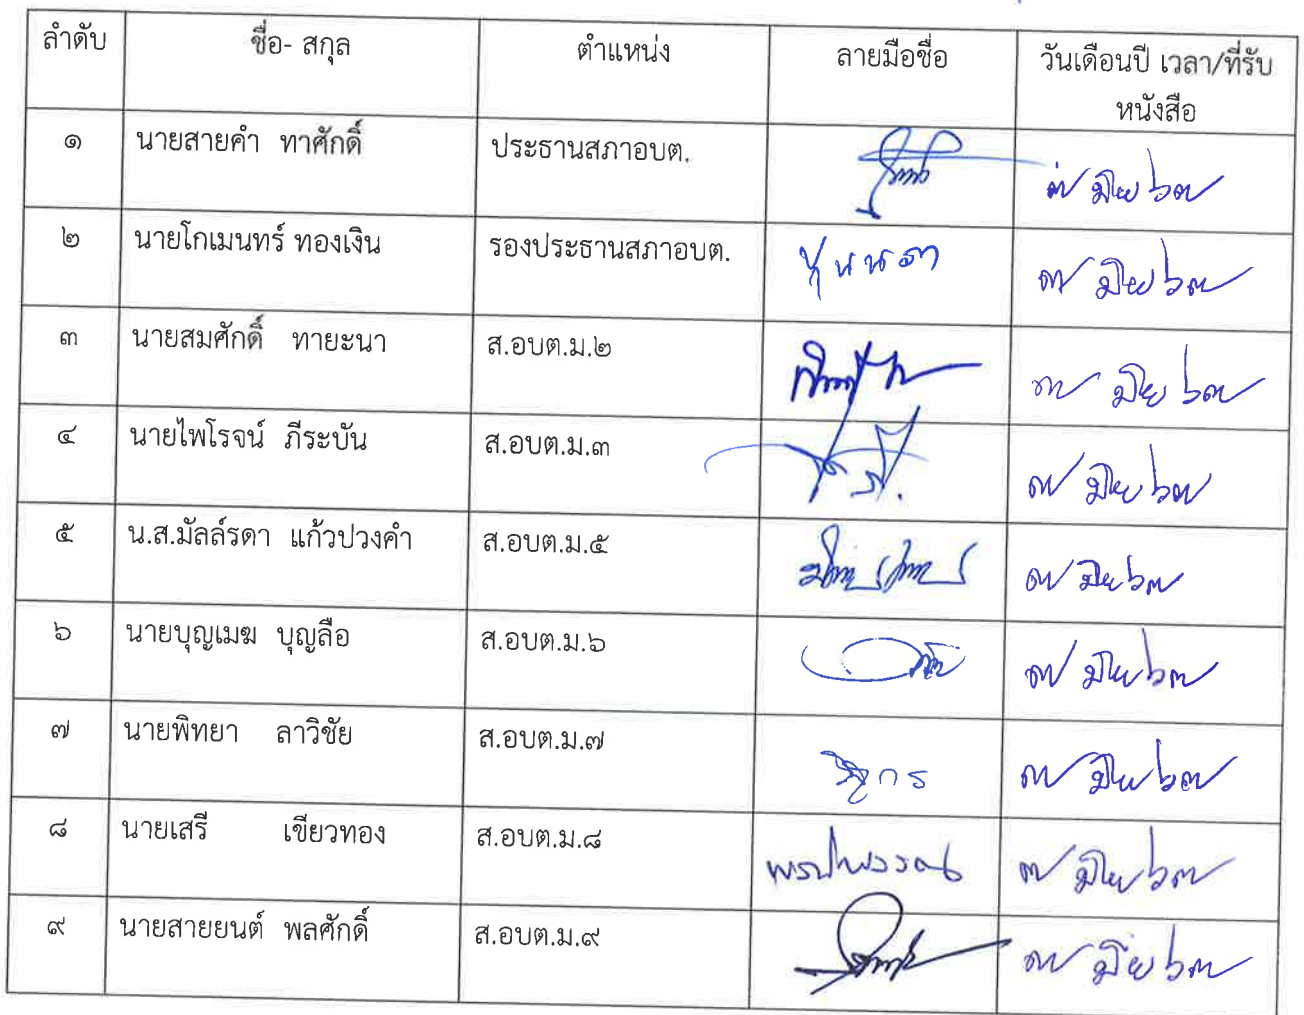 ลำดับ ชื่อ- สกุล ตำแหน่ง ลายมือชื่อ วันเดือนปี เวลา/ที่รับ
หนังสือ
๑ นายสายคำ ทาศักดิ์ ประธานสภาอบต. ๗ มิย ๖๗
๒ นายโกเมนทร์ ทองเงิน รองประธานสภาอบต. ๗ มิย ๖๗
๓ นายสมศักดิ์ ทายะนา ส.อบต.ม.๒ ๗ มิย ๖๗
๔ นายไพโรจน์ ภีระบัน ส.อบต.ม.๓ ๗ มิย ๖๗
๕ น.ส.มัลล์รดา แก้วปวงคำ ส.อบต.ม.๕ ๗ มิย ๖๗
๖ นายบุญเมฆ บุญลือ ส.อบต.ม.๖ ๗ มิย ๖๗
๗ นายพิทยา ลาวิชัย ส.อบต.ม.๗ ๗ มิย ๖๗
๘ นายเสรี เขียวทอง ส.อบต.ม.๘ ๗ มิย ๖๗
๙ นายสายยนต์ พลศักดิ์ ส.อบต.ม.๙ ๗ มิย ๖๗